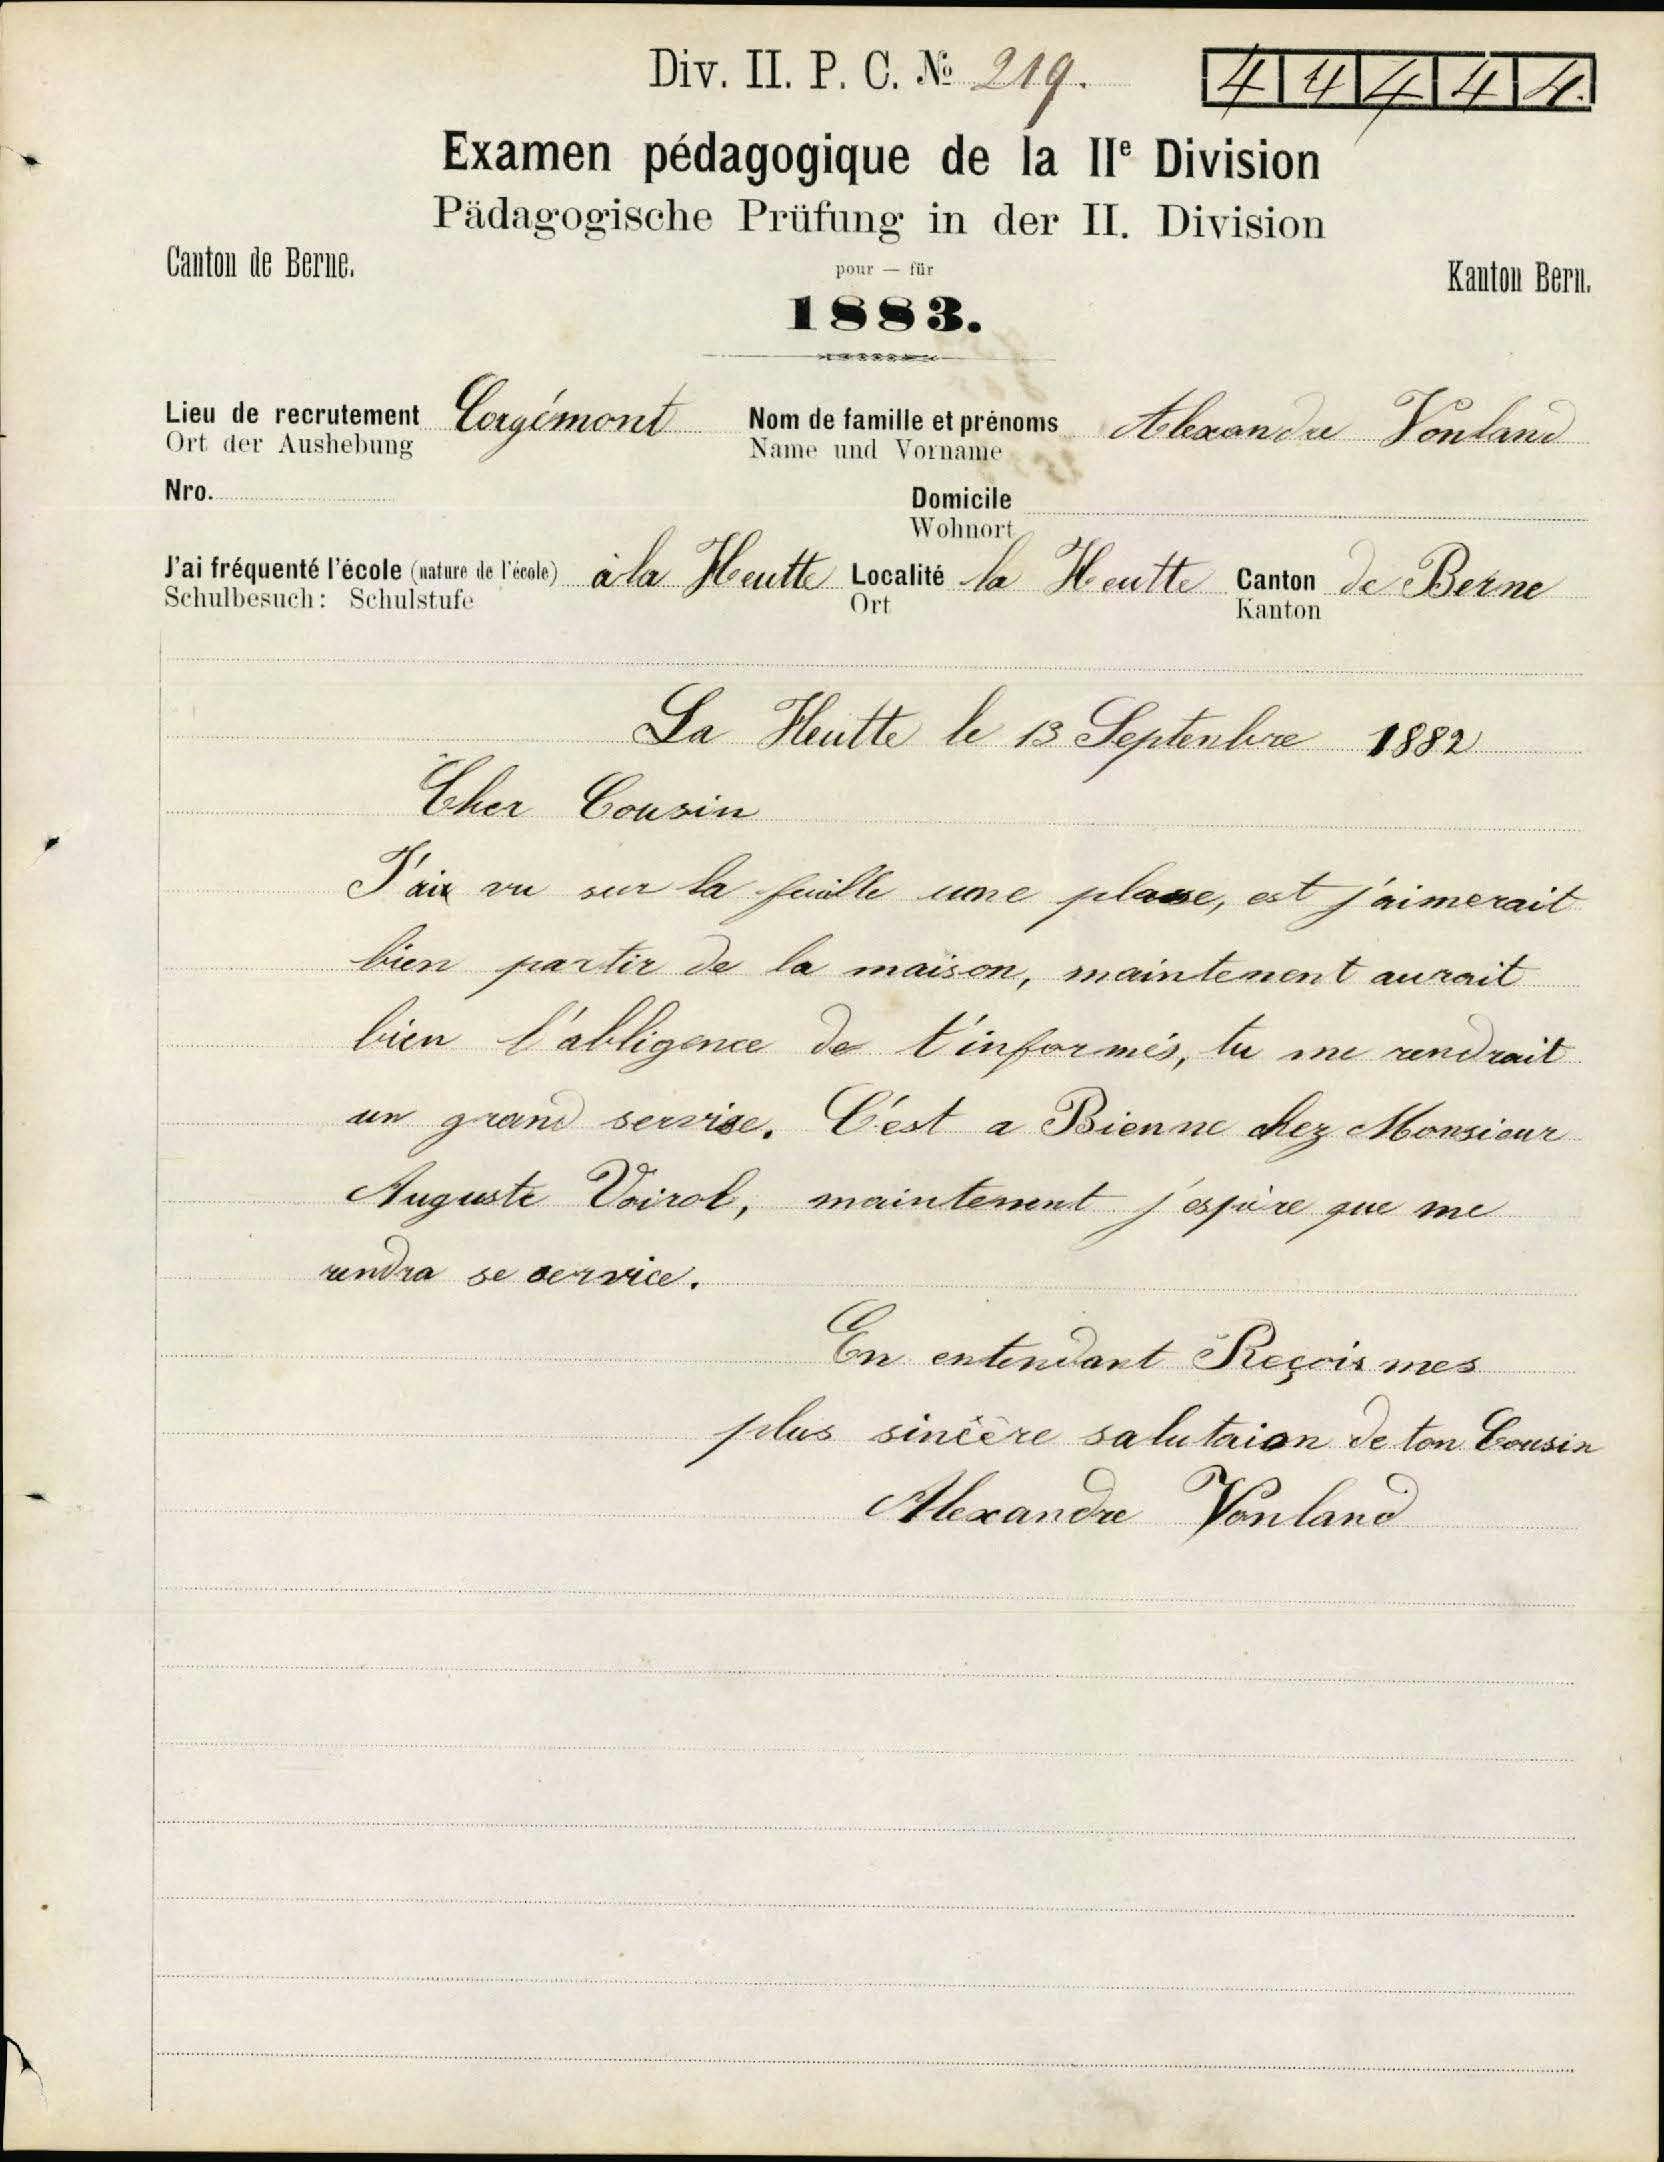 Div. II. P. C. № 219.
4 4 4 4 4.
Examen pédagogique de la IIe Division
Pädagogische Prüfung in der II. Division
Canton de Berne.
pour — für
Kanton Bern.
1883.
Lieu de recrutement Corgémont Nom de famille et prénoms Alexandre Vonland
Ort der Aushebung Name und Vorname
Nro. Domicile
Wohnort
J'ai fréquenté l'école (nature de l'école) à la Heutte Localité la Heutte Canton de Berne
Schulbesuch: Schulstufe Ort Kanton
La Heutte le 13 Septenbre 1882
Cher Cousin
J'aix vu sur la feuille une plasse, est j'aimerait
bien partir de la maison, maintenent aurait
bien l'abligence de t'informés, tu me rendrait
un grand servise. C'est a Bienne chez Monsieur
Auguste Voirol, maintenent j'espère que me
rendra se service.
En entendant Reçois mes
plus sincère salutaion de ton Cousin
Alexandre Vonland